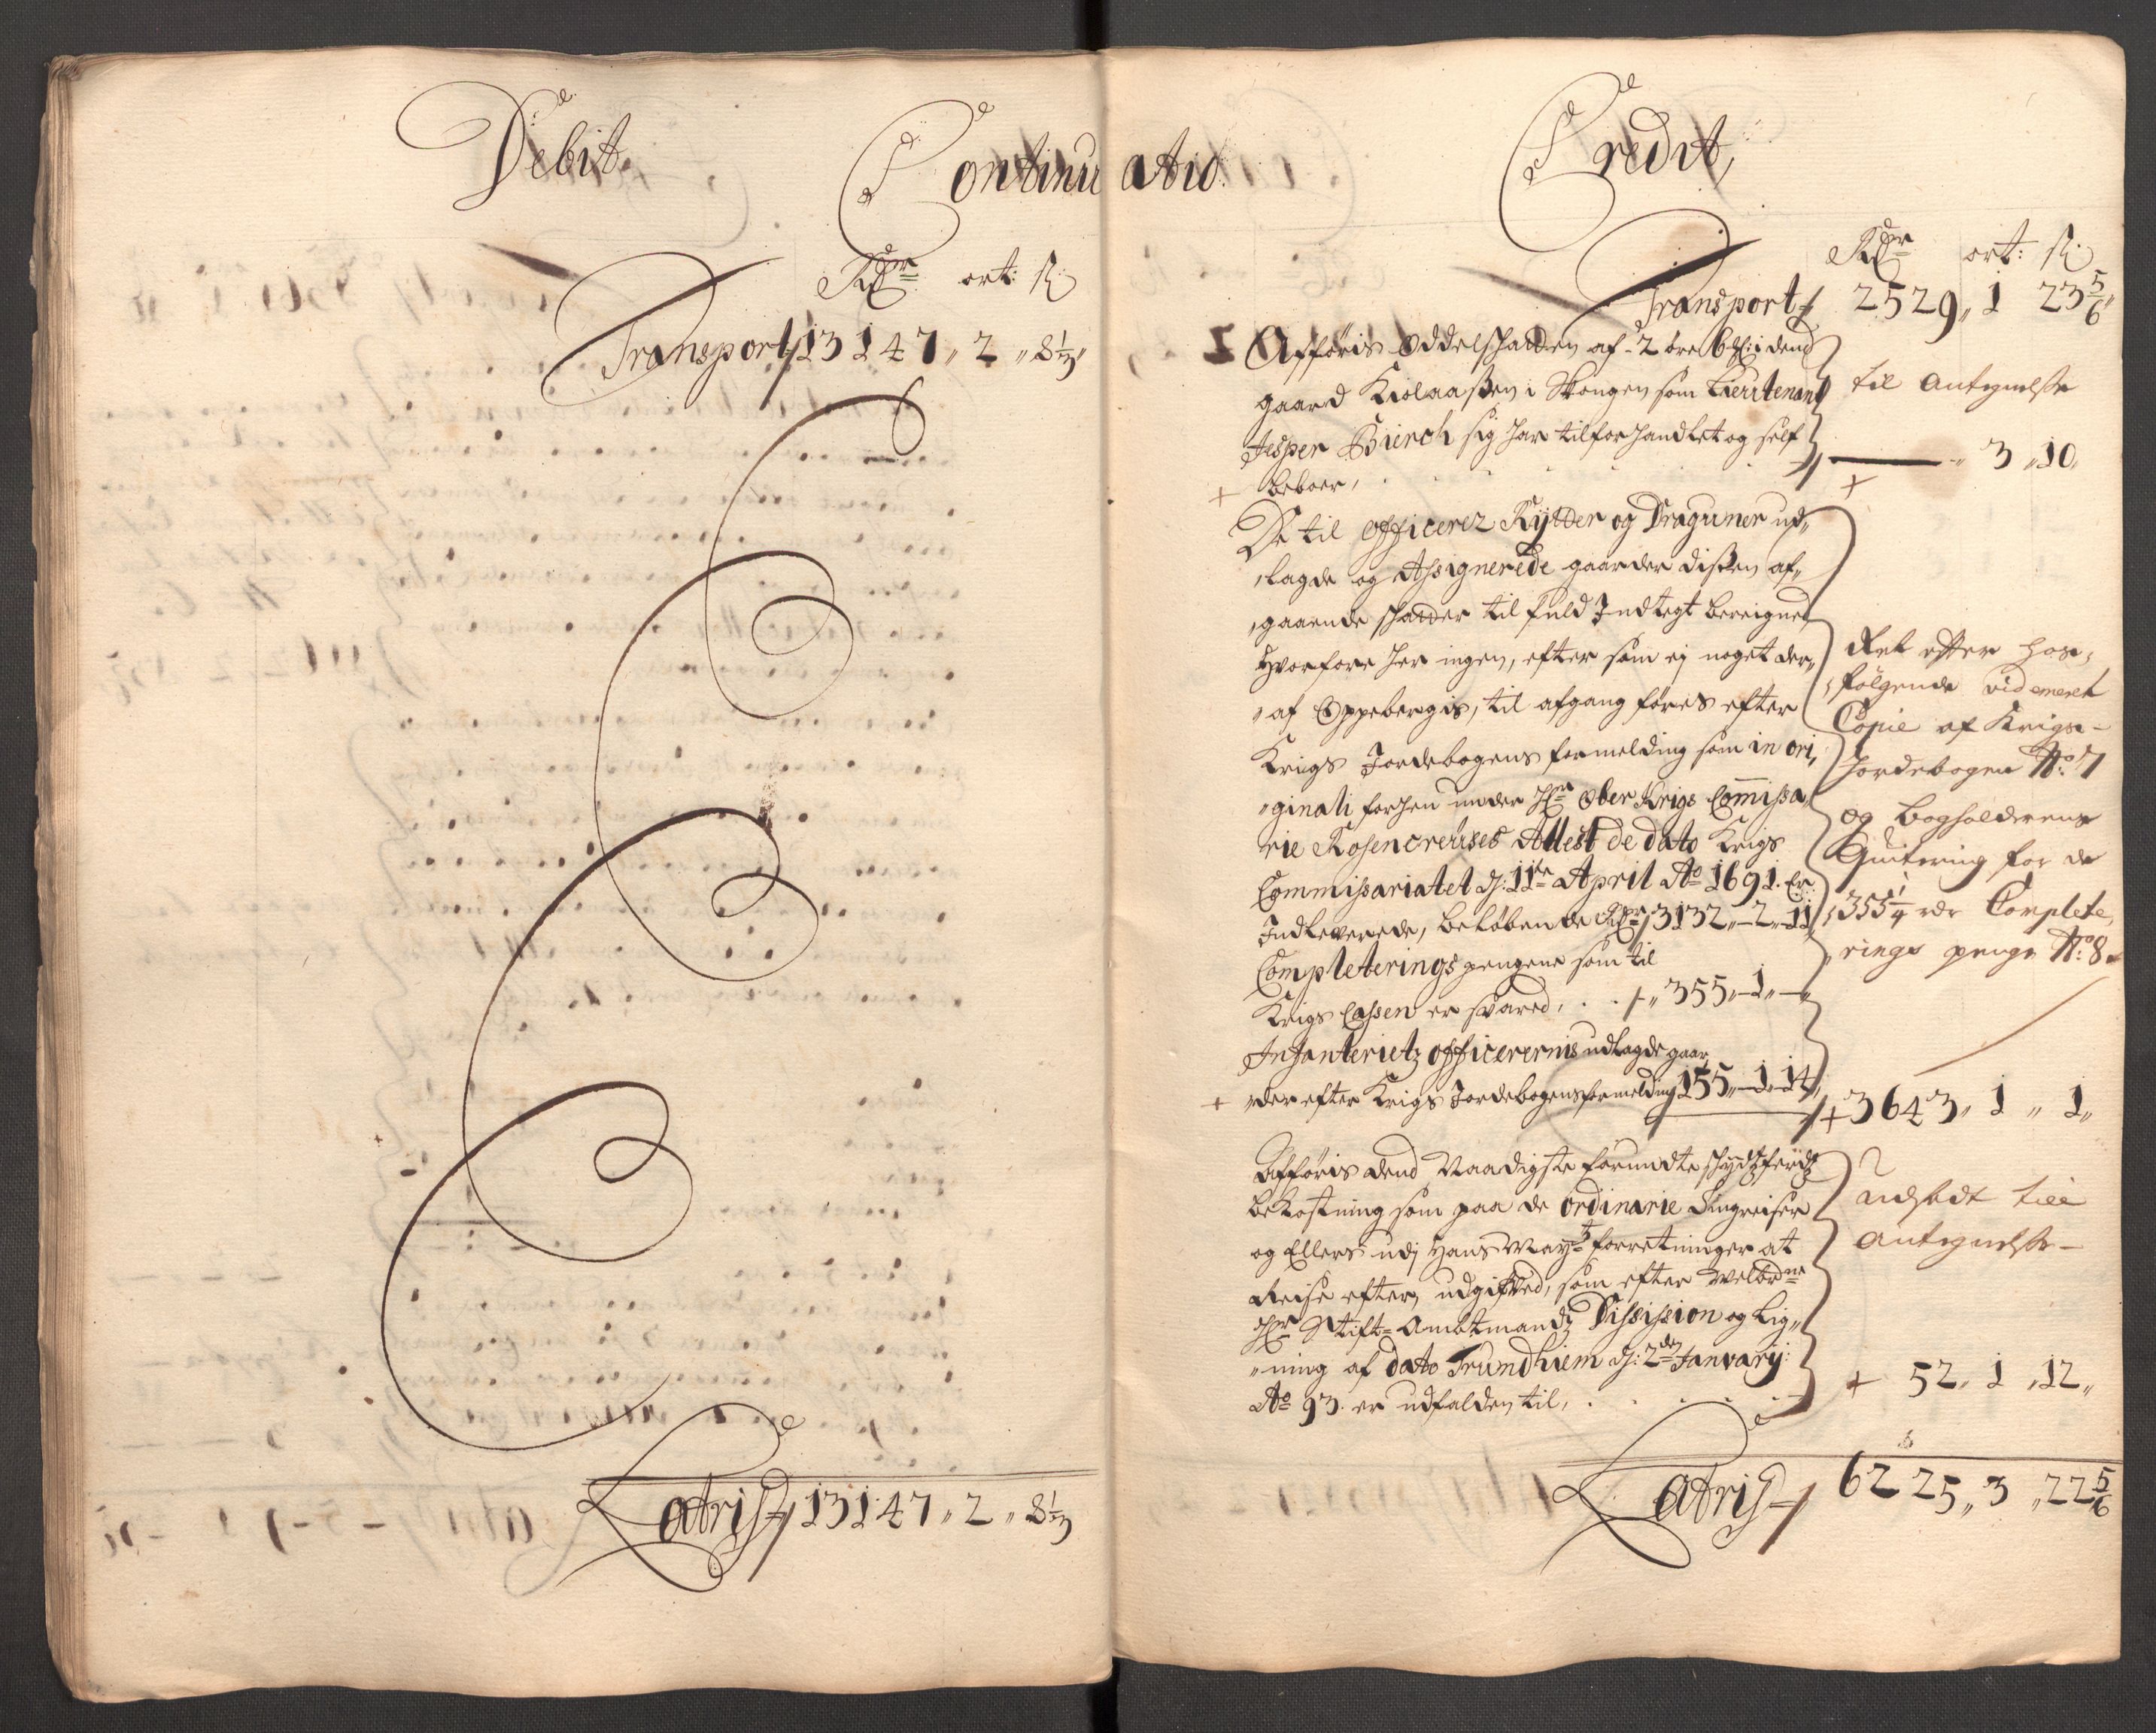 Debit
Continuatio.
Rdr ort: ſk
Transport 13147,, 2 ,, 8 1/3 ,,
Latris 13147,, 2 ,, 8 1/3
Credit,
Rdr ort: ſk
Transport 2529,, 1 23 5/6 ,,
Afføris Oddelschatten af - 2 øre 6 i dend
gaard Kiolaaßen i Stongen som Lieutenant
Jesper Bierch sig har tilforhandlet og self
beboer,
til Antegnelse
3 ,, 10
De til officerer Rytter og Draguner ud,,
,,lagde og Assignerede gaarder dißen af,,
,,gaaende schatter til fuld Indtegt bereignet
hvorfore her ingen, efter som ej noget der,,
,,af Oppebergis, til afgang føres efter
Krigs Jordebogens formelding som in ori,,
,,ginali forhen under Hr Ober Krigs Commißa,,
rie Rosencreutses Attest de dato Krigs
Commißariatet d: 11te April Ao 1691. Er
Indleverede, beløbende Rdr 3132,,-2,,-11
Completerings pengene som til
Krigs Caßen er svared, . . 355,,-1,,-
Infanterietz officerernis udlagde gaar,
,,der efter Krigs Jordebogens formelding 155,,-1,,-14,,
Ret efter hos,
følgende videmeret
Copie af Krigs-
Jordebogen No: 7
og bogholderens
Quitering for de
355 1/4 rdr Complete,
rings penge No: 8
+ 3643,, 1 ,, 1,,
Afføris dend Naadigste forundte schydtzferdz
bekostning som paa de ordinarie Tingreiser
og Ellers udj Hans Mayts forretninger at
Reise efter, udgifved, som efter Welbrne
Hr Stift-Ambtmandz Dißißion og Lig,,
,,ning af dato Trundhiem d: 2den January
Ao 93. er udfalden til,
Udsadt till
Antegnelse-
+ 52,, 1 ,, 12,,
Latris 6225,, 3 ,, 22 5/6